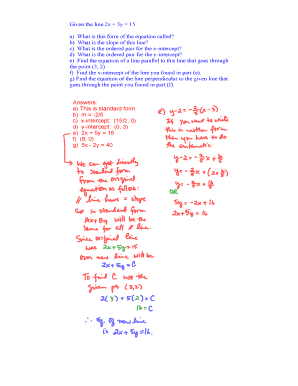 Given the line 2x + 5y = 15
a) What is this form of the equation called?
b) What is the slope of this line?
c) What is the ordered pair for the x-intercept?
d) What is the ordered pair for the y-intercept?
e) Find the equation of a line parallel to this line that goes through
the point (3, 2)
f) Find the x-intercept of the line you found in part (e).
g) Find the equation of the line perpendicular to the given line that
goes through the point you found in part (f).
Answers:
a) This is standard form.
b) m = -2/5
c) x-intercept: (15/2, 0)
d) y-intercept: (0, 3)
e) 2x + 5y = 16
f) (8, 0)
g) 5x - 2y = 40
We can get directly
to standard form
from the original
equation as follows:
// lines have = slope
so in standard form
Ax+By will be the
same for all // lines.
Since original line
was 2x+5y=15
our new line will be
2x+5y = C
To find C use the
given pt (3,2)
2(3)+5(2)=C
16=C
∴ eq. of new line
is 2x+5y=16.
e) y-2=-2/5(x-3)
If you want to write
this in another form
then you have to do
the arithmetic
y-2=-2/5x+6/5
y=-2/5x+(2+6/5)
y=-2/5x+16/5
OR
5y=-2x+16
2x+5y=16